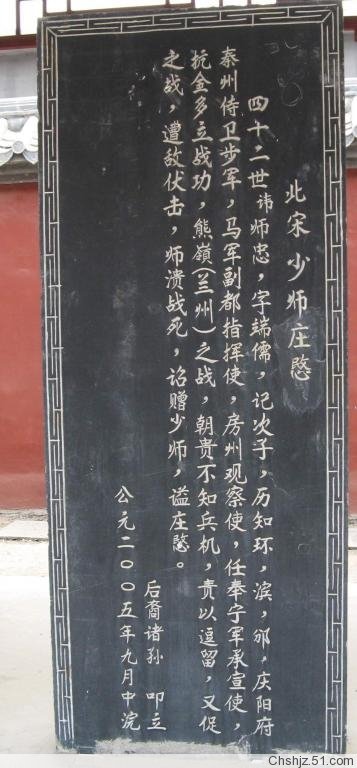 北宋少师庄愍
四十二世讳师忠，字端儒，记次子，历知环，滨，邠，庆阳府
秦州侍卫步军，马军副都指挥使，房州观察使，任奉宁军承宣使，
抗金多立战功，熊嶺(兰州)之战，朝贵不知兵机，责以逗留，又促
之战，遭敌伏击，师溃战死，诏赠少师，谥庄愍。
后裔诸孙 叩立
公元二〇〇五年九月中浣
Chshjz.51.com